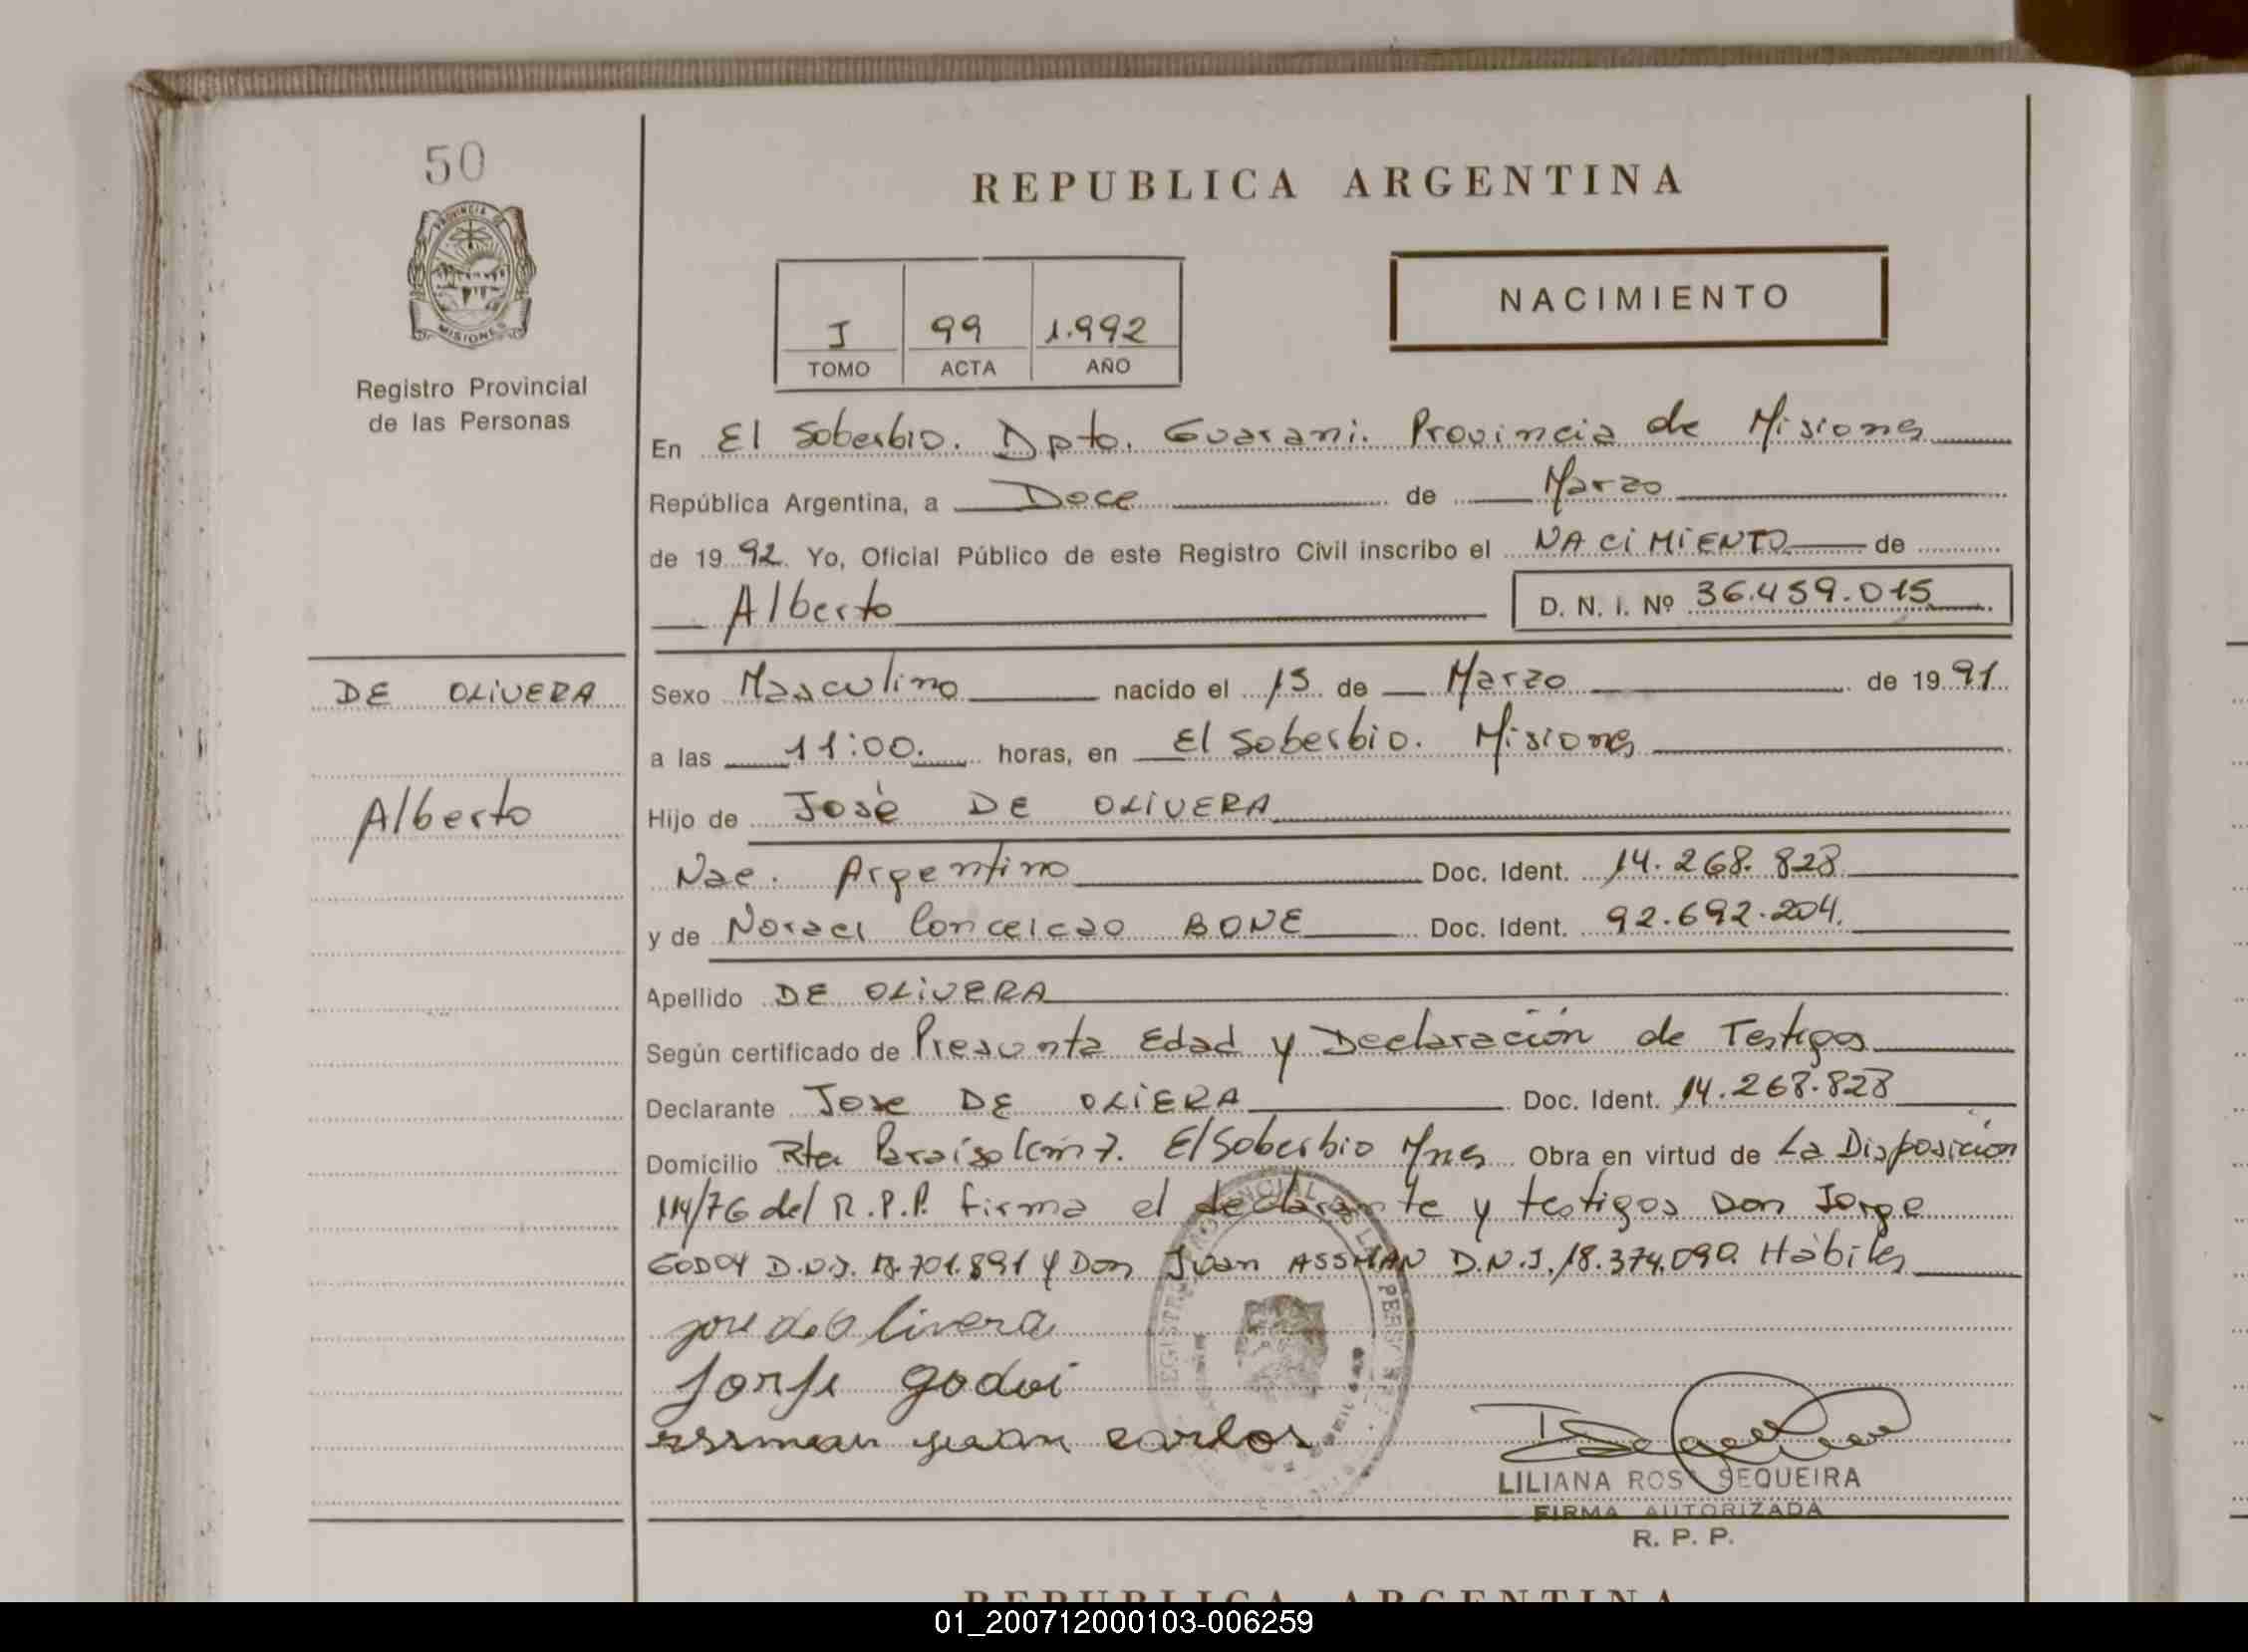 50
PROVINCIA DE
MISIONES
Registro Provincial
de las Personas
DE OLIVERA
Alberto
REPUBLICA ARGENTINA
I 99 1.992
TOMO ACTA AÑO
NACIMIENTO
En El Soberbio. Dpto. Guarani. Provincia de Misiones
República Argentina, a Doce de Marzo
de 1992. Yo, Oficial Público de este Registro Civil inscribo el NACIMIENTO de
Alberto D. N. I. Nº 36.459.015
Sexo Masculino nacido el 15 de Marzo de 1991
a las 11:00. horas, en El Soberbio. Misiones
Hijo de José DE OLIVERA
Nac. Argentino Doc. Ident. 14.268.828
y de Noraci Conceicao BONE Doc. Ident. 92.692.204.
Apellido DE OLIVERA
Según certificado de Presunta Edad y Declaración de Testigos
Declarante Jose DE OLIERA Doc. Ident. 14.268.828
Domicilio Rta Paraíso Km 7. El Soberbio Mnes Obra en virtud de La Disposición
114/76 del R.P.P. firma el declarante y testigos Don Jorge
GODOY D.N.I. 701.891 y Don Juan ASSMAN D.N.I. 18.374.090. Hábiles
jose de Olivera
Jorje godoi
assman juan carlos
LILIANA ROSA SEQUEIRA
FIRMA AUTORIZADA
R. P. P.
REPUBLICA ARGENTINA
01_200712000103-006259